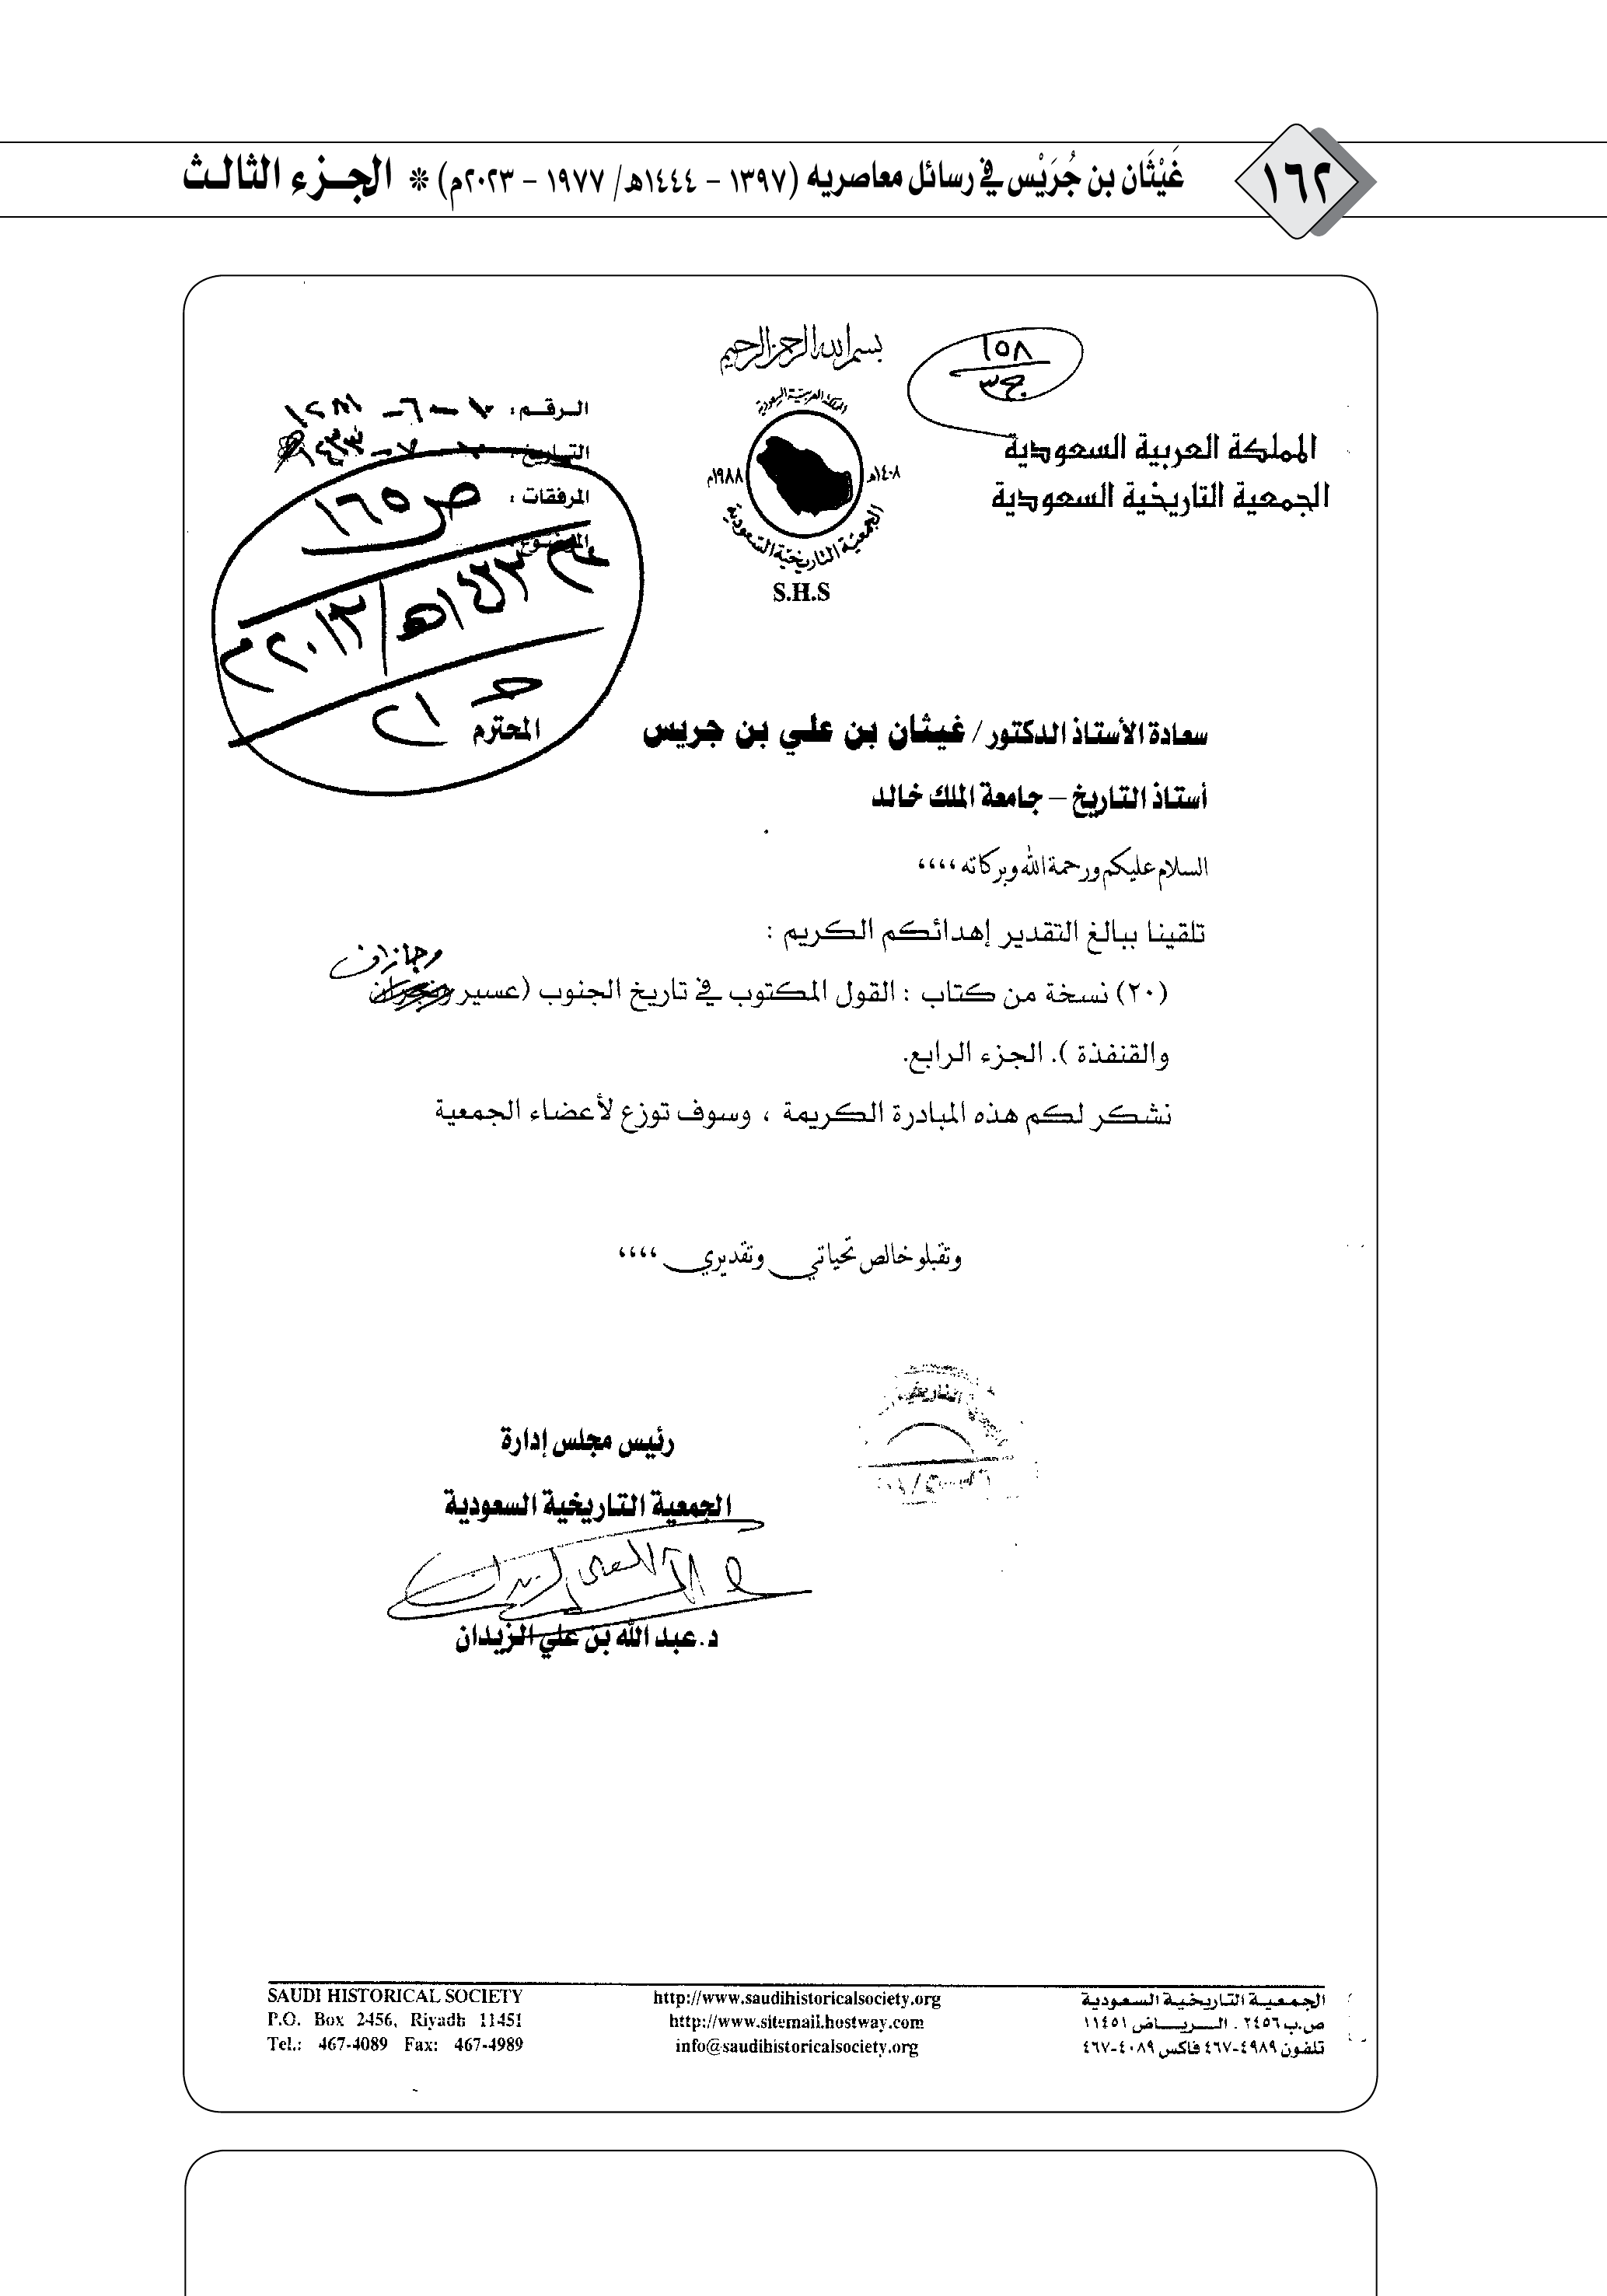 ١٦٢
غَيْثَان بن جُرَيْس في رسائل معاصريه (١٣٩٧ - ١٤٤٤هـ/ ١٩٧٧ - ٢٠٢٣م) * الجزء الثالث
١٥٨
ج٣
بسم الله الرحمن الرحيم
المملكة العربية السعودية
الجمعية التاريخية السعودية
المملكة العربية السعودية
١٤٠٨هـ
١٩٨٨م
الجمعية التاريخية السعودية
S.H.S
الرقم :
التاريخ :
المرفقات :
الموضوع
ص ١٦٥
١٤٣٣هـ / ٢٠١٢م
سعادة الأستاذ الدكتور / غيثان بن علي بن جريس المحترم
أستاذ التاريخ – جامعة الملك خالد
السلام عليكم ورحمة الله وبركاته ،،،،
تلقينا ببالغ التقدير إهدائكم الكريم :
وجازان
(٢٠) نسخة من كتاب : القول المكتوب في تاريخ الجنوب (عسير ونجران
والقنفذة ). الجزء الرابع.
نشكر لكم هذه المبادرة الكريمة ، وسوف توزع لأعضاء الجمعية
وتقبلو خالص تحياتي وتقديري ،،،،
رئيس مجلس إدارة
الجمعية التاريخية السعودية
د. عبد الله بن علي الزيدان
الجمعية التاريخية السعودية
ص.ب ٢٤٥٦ . الرياض ١١٤٥١
تلفون ٤٩٨٩-٤٦٧ فاكس ٤٠٨٩-٤٦٧
http://www.saudihistoricalsociety.org
http://www.sitemail.hostway.com
info@saudihistoricalsociety.org
SAUDI HISTORICAL SOCIETY
P.O. Box 2456, Riyadh 11451
Tel.: 467-4089 Fax: 467-4989